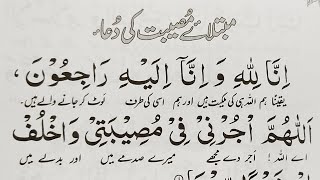 مبتلائے مُصیبت کی دُعاء
اِنَّا لِلّٰهِ وَ اِنَّآ اِلَيْهِ رَاجِعُوْنَ ،
یقیناً ہم اللہ ہی کی ملکیت ہیں اور ہم اسی کی طرف لوٹ کر جانے والے ہیں۔
اَللّٰهُمَّ اْجُرْنِيْ فِيْ مُصِيْبَتِيْ وَاخْلُفْ
اے اللہ ! اجر دے مجھے میرے صدمے میں اور بدلے میں